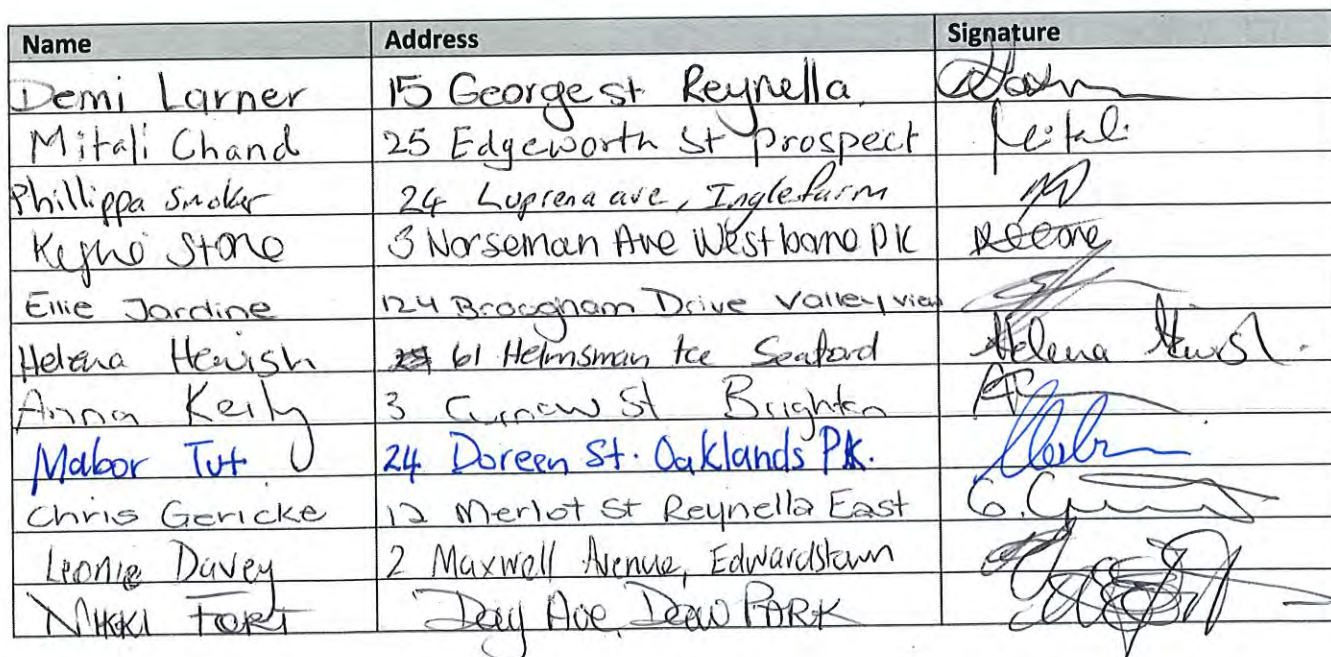 Name Address Signature
Demi Larner 15 George st Reynella
Mitali Chand 25 Edgeworth St Prospect Mitali
Phillippa Smoker 24 Luprena ave, Inglefarm
Stone 3 Norseman Ave Westborne PK
Ellie Jardine 124 Broogham Drive Valley view
Helena Hewish 61 Helmsman tce Seaford Helena
Anna Keily 3 Curnow St Brighton
Mabor Tut 24 Doreen St. Oaklands PK.
Chris Gericke 12 Merlot St Reynella East
Leonie Davey 2 Maxwell Avenue, Edwardstown
NIKKI Day Ave, PARK